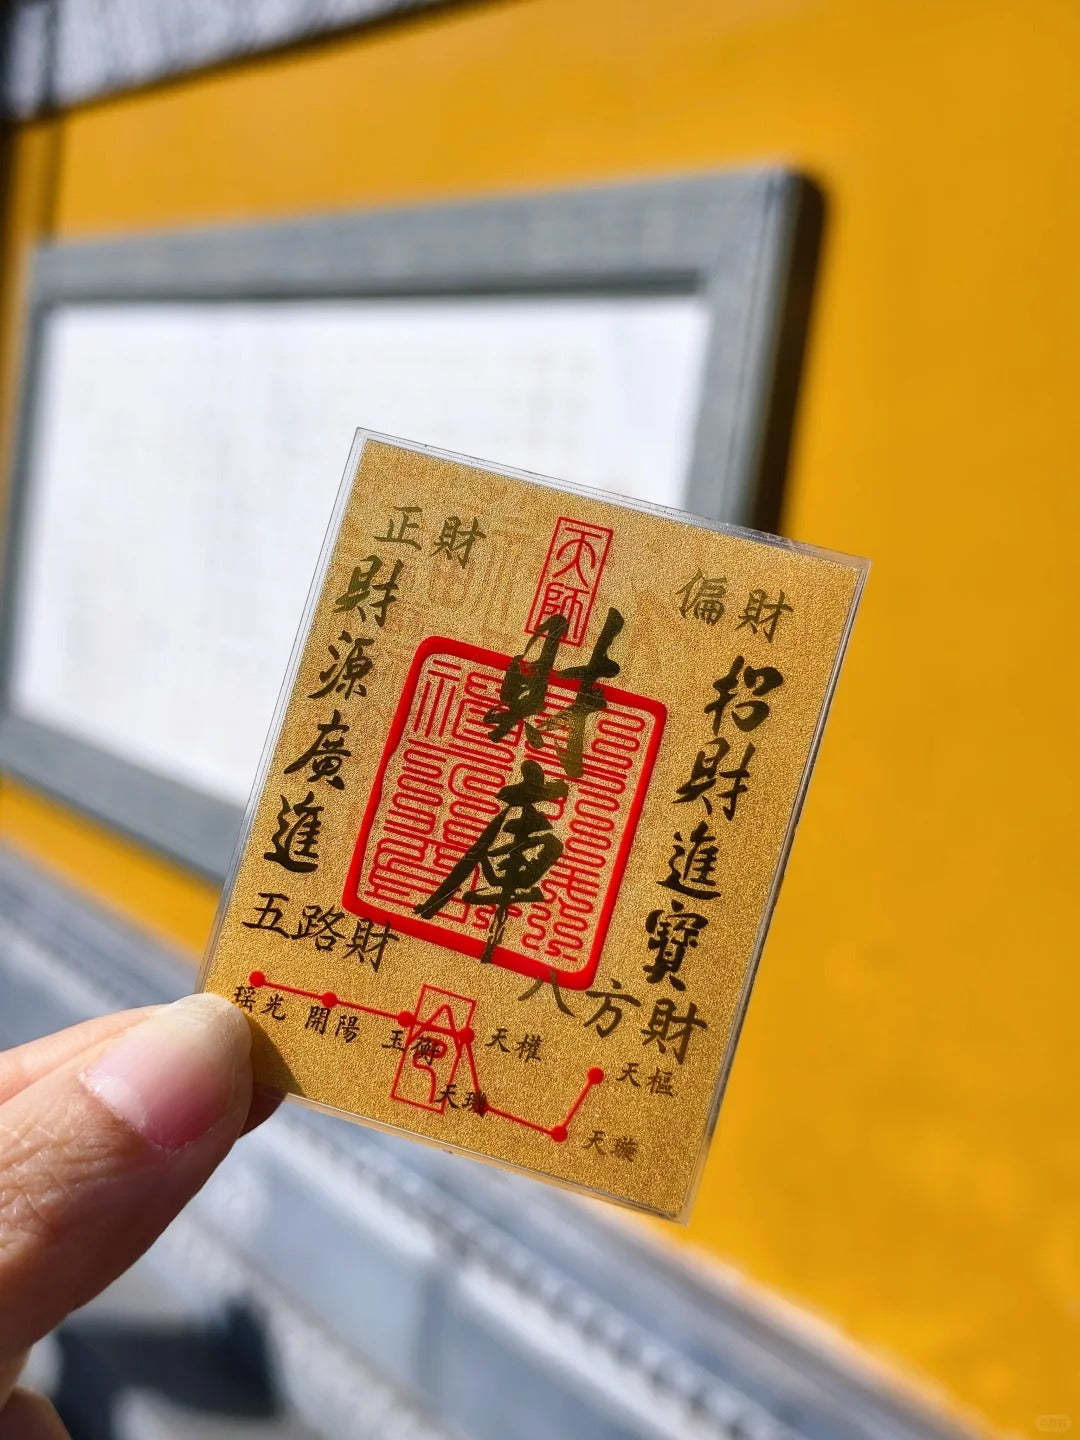 正財
偏財
天師
財庫
財源廣進
招財進寶
五路財
八方財
瑶光
開陽
玉衡
天權
天璣
天樞
天璇